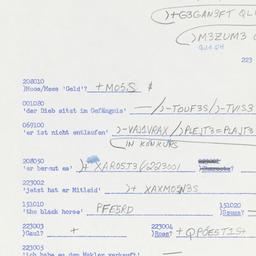 )+G3GAN3FT QL
)M3ZUM3
223
208010
)Moos/Mees 'Geld'? +MO5:S
001080
'der Dieb sitzt im Gefängnis' —/)-TOUF3S/)-TVIS3
069100
'er ist nicht entlaufen' )-VA1VRAX /)PLEJT3=PLAJT3
IN KONKURS
208090
'er bereut es' )+ XAR05T3/-223001
223002
'jetzt hat er Mitleid' )+ XAXMO5N3S
151010
'the black horse' PFE5RD
151020
)Szuss?
223003
)Gaul? +
223004
)Ross? +QPOEST1S+
223005
'ich habe es dem Makler verkauft'